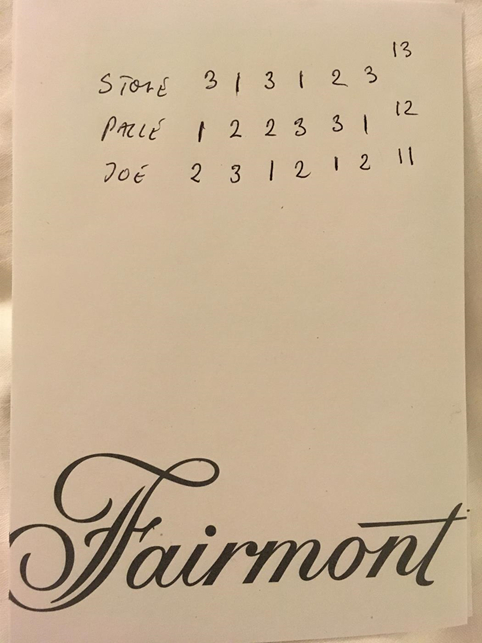 STOLÉ 3 1 3 1 2 3 13
PALLÉ 1 2 2 3 3 1 12
JOÉ 2 3 1 2 1 2 11
Fairmont